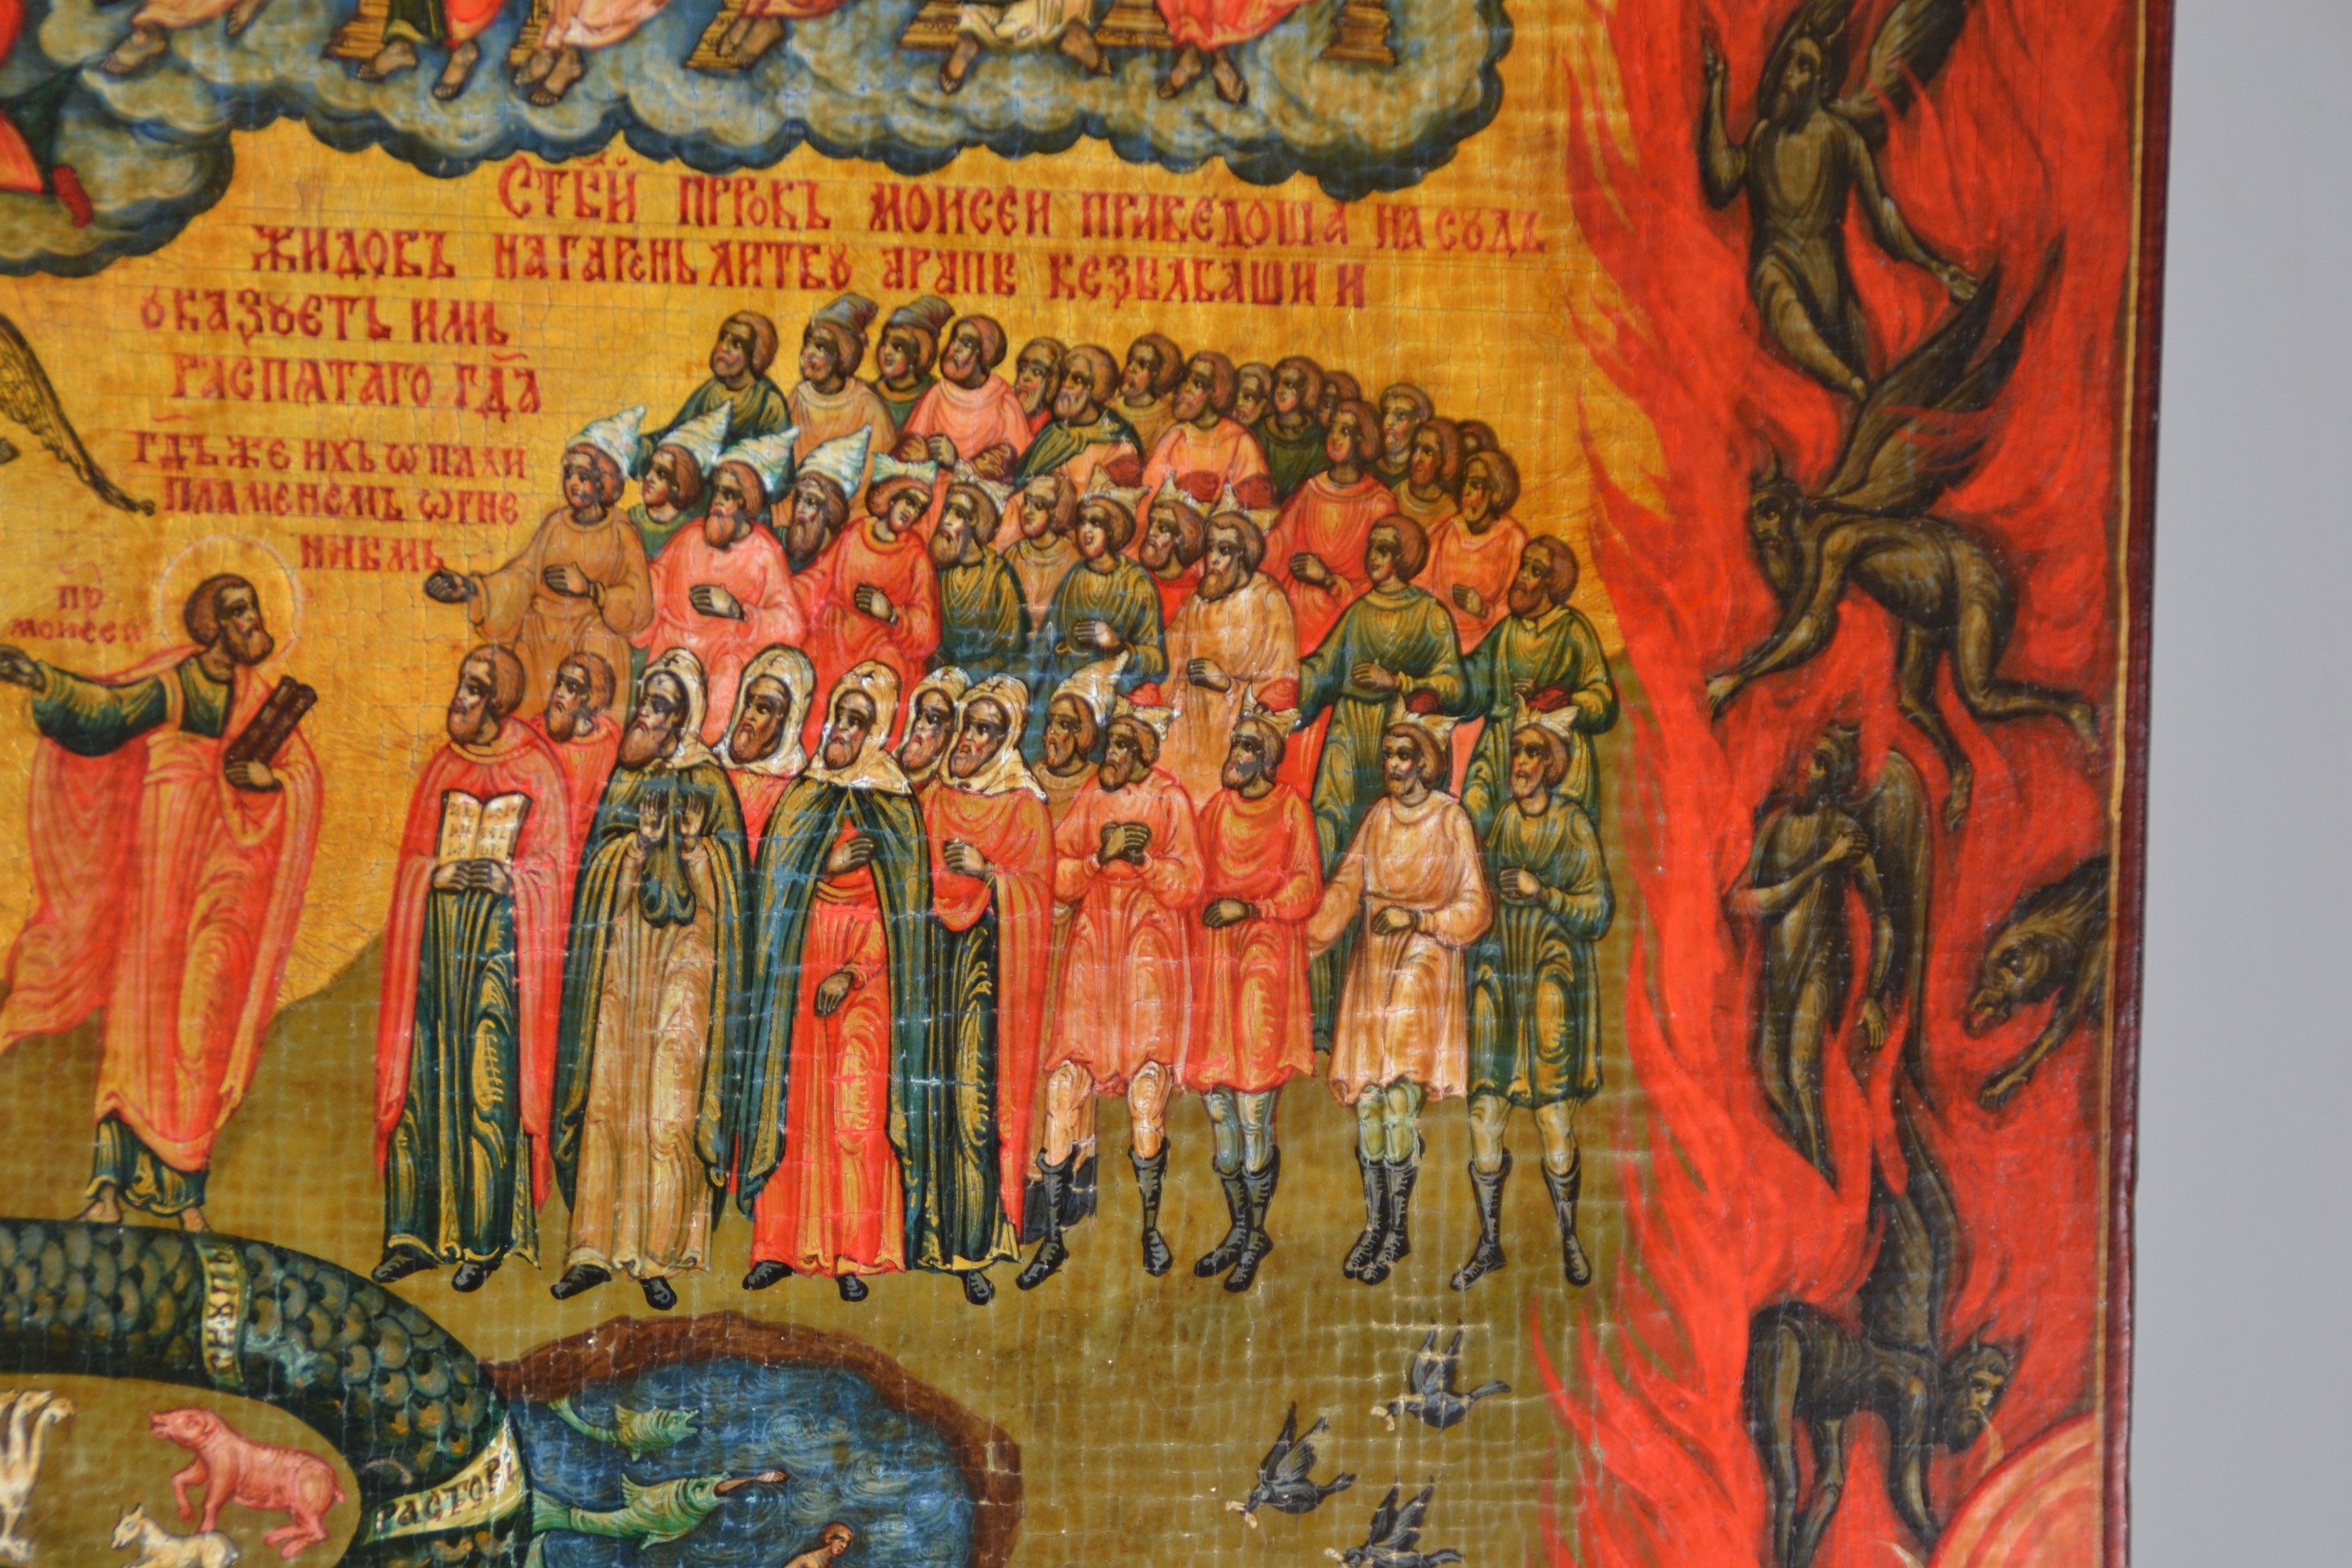 СТ҃БЙ ПРРОКЪ МОИСЕИ ПРИВЕДОША НА СꙊДЪ
ЖИДОВЪ НАГАРЕНЬ ЛИТВꙊ АРАПЕ КЕЗЫЛБАШИ И
ꙊКАЗꙊЕТЪ ИМЬ
РАСПЯТАГО ГД҃А
ГД҃Ь ЖЕ ИХЪ ѠПАЛИ
ПЛАМЕНЕМЪ ѠГНЕ
НИЕМЬ
ПР҃
МОИСЕИ